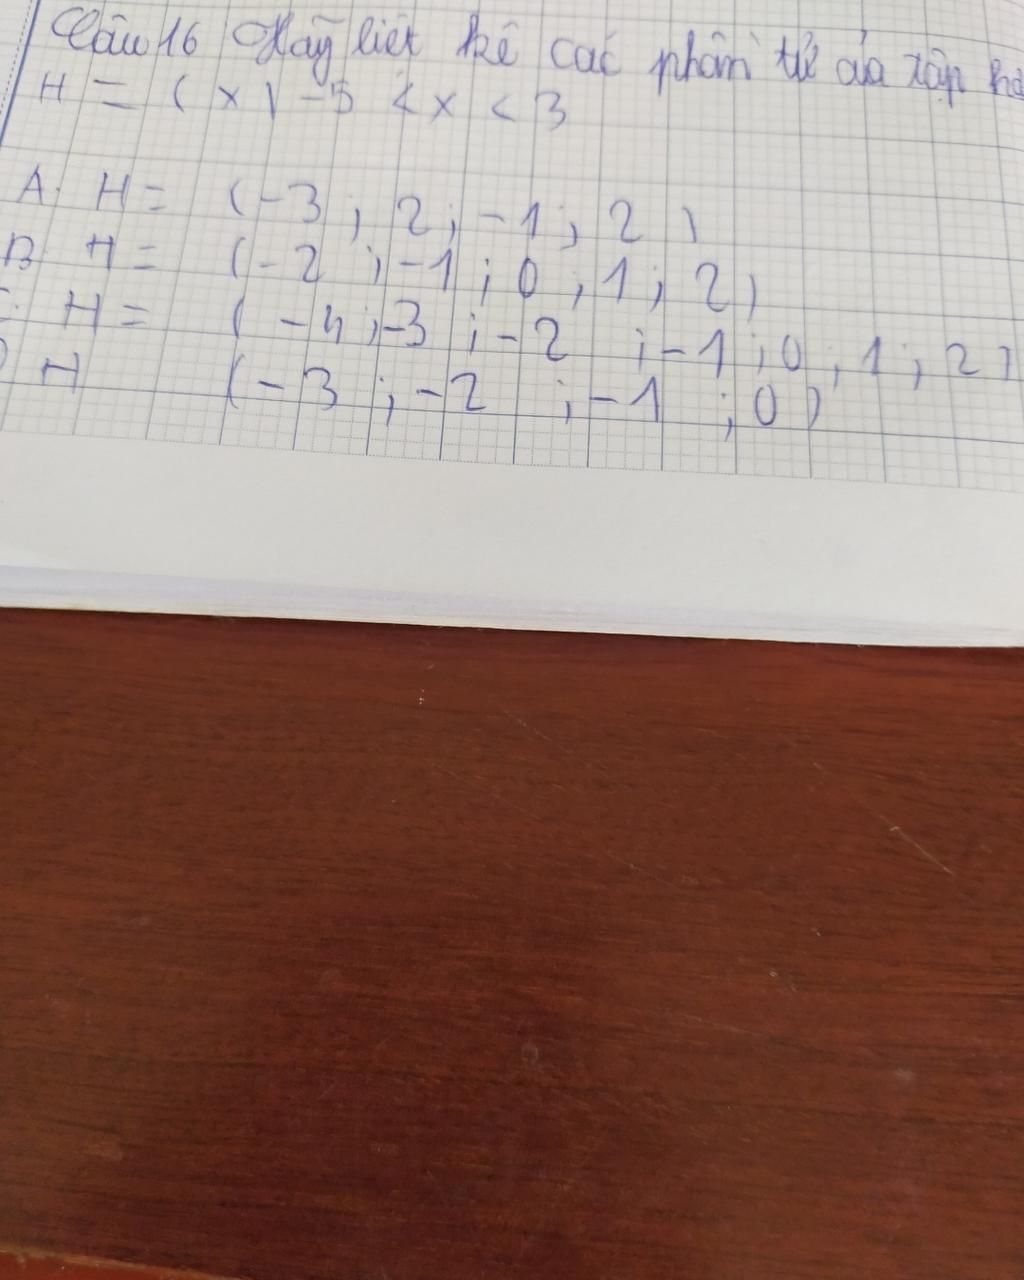 Câu 16 Hãy liệt kê các phần tử của tập
H = ( x ) -5 < x < 3
A. H = (-3 ; 2 ; -1 ; 2 )
B H = (-2 ; -1 ; 0 ; 1 ; 2)
H = ( -4 ; -3 ; -2 ; -1 ; 0 ; 1 ; 2)
H (-3 ; -2 ; -1 ; 0 )